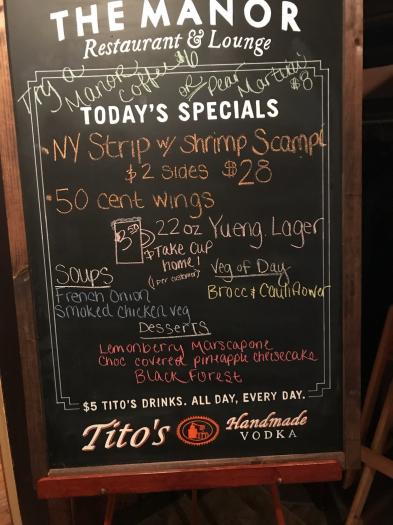 THE MANOR
Restaurant & Lounge
Try a Manor Coffee $6
or Pear Martini $8
TODAY'S SPECIALS
• NY Strip w/ Shrimp Scampi
& 2 sides $28
• 50 cent wings
3.50
22 oz Yueng. Lager
& Take cup
home!
(1 per customer)
Soups
French Onion
Smoked chicken veg
Veg of Day
Brocc & Cauliflower
Desserts
Lemonberry Marscapone
Choc covered pineapple cheesecake
Black Forest
$5 TITO'S DRINKS. ALL DAY, EVERY DAY.
Tito's
Handmade
VODKA